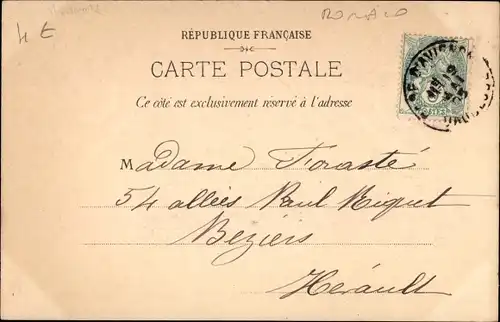 4 €
RÉPUBLIQUE FRANÇAISE
CARTE POSTALE
Ce côté est exclusivement réservé à l'adresse
Madame Forasté
54 allées Paul Riquet
Béziers
Hérault